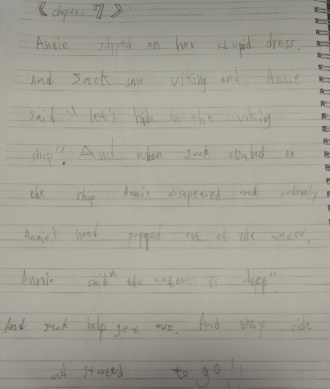 《chapter 7》
Annie slipped on her stupid dress.
And Jack saw viking and Annie
said "let's hide in the vikig
ship". And when Jack climbed on
the ship Annie disapeared and
Annie's head popped out of the water.
Annie said "the water is deep".
And Jack help get out. And they ride
and started to go!!